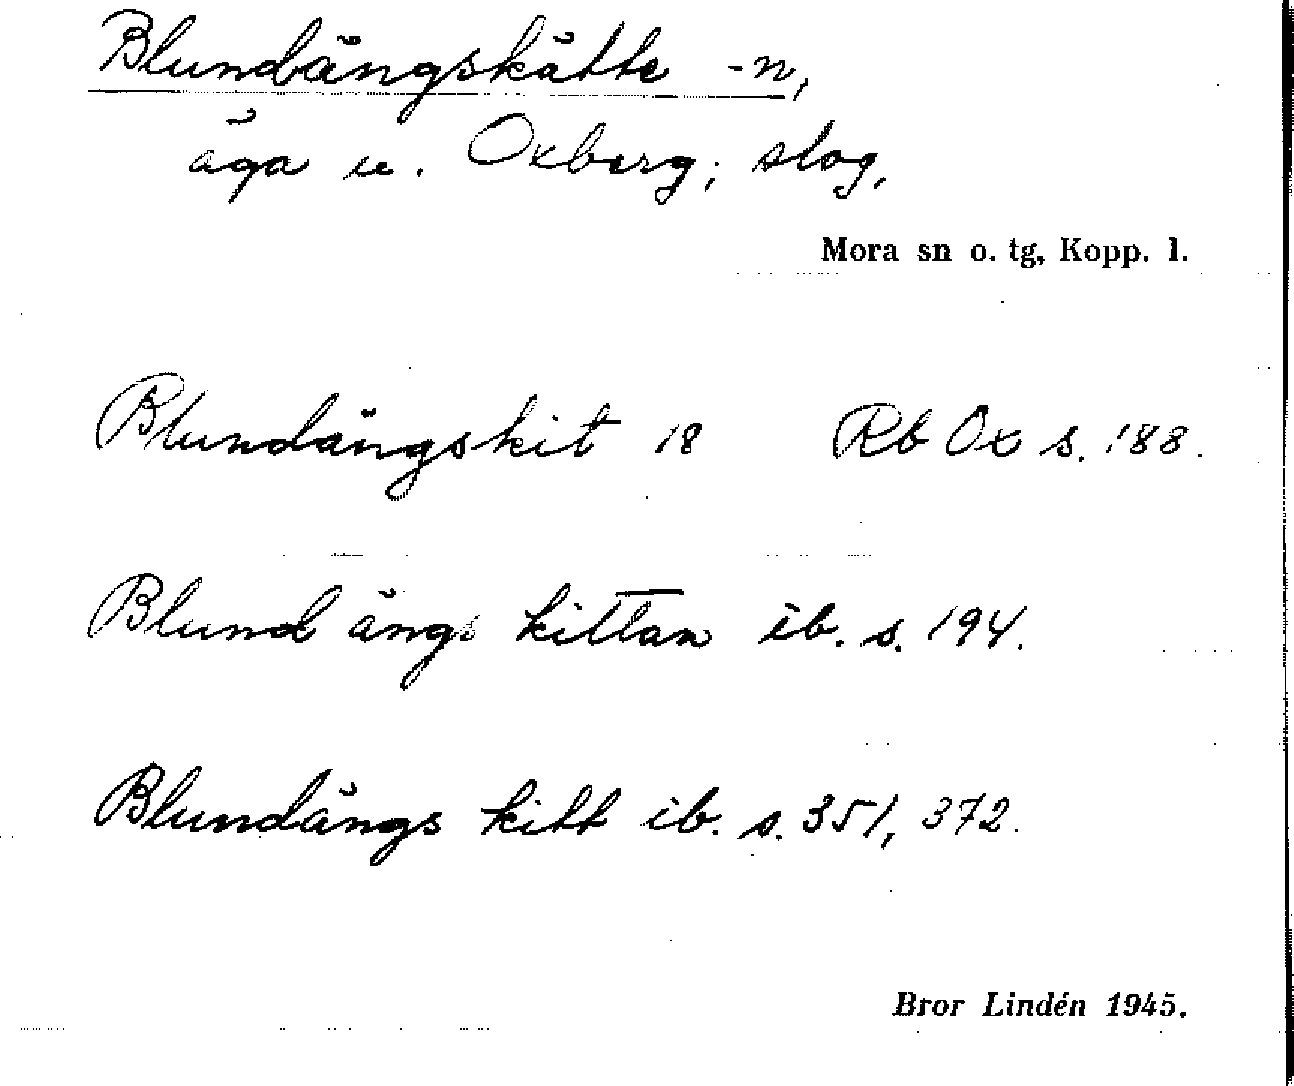 Blundängskätte -n,
äga u. Oxberg; slog,
Mora sn o. tg, Kopp. l.
Blundängskit 18 Rb Ox s. 188.
Blund ängs kittan ib. s. 194.
Blundängs kitt ib. s. 351, 372.
Bror Lindén 1945.